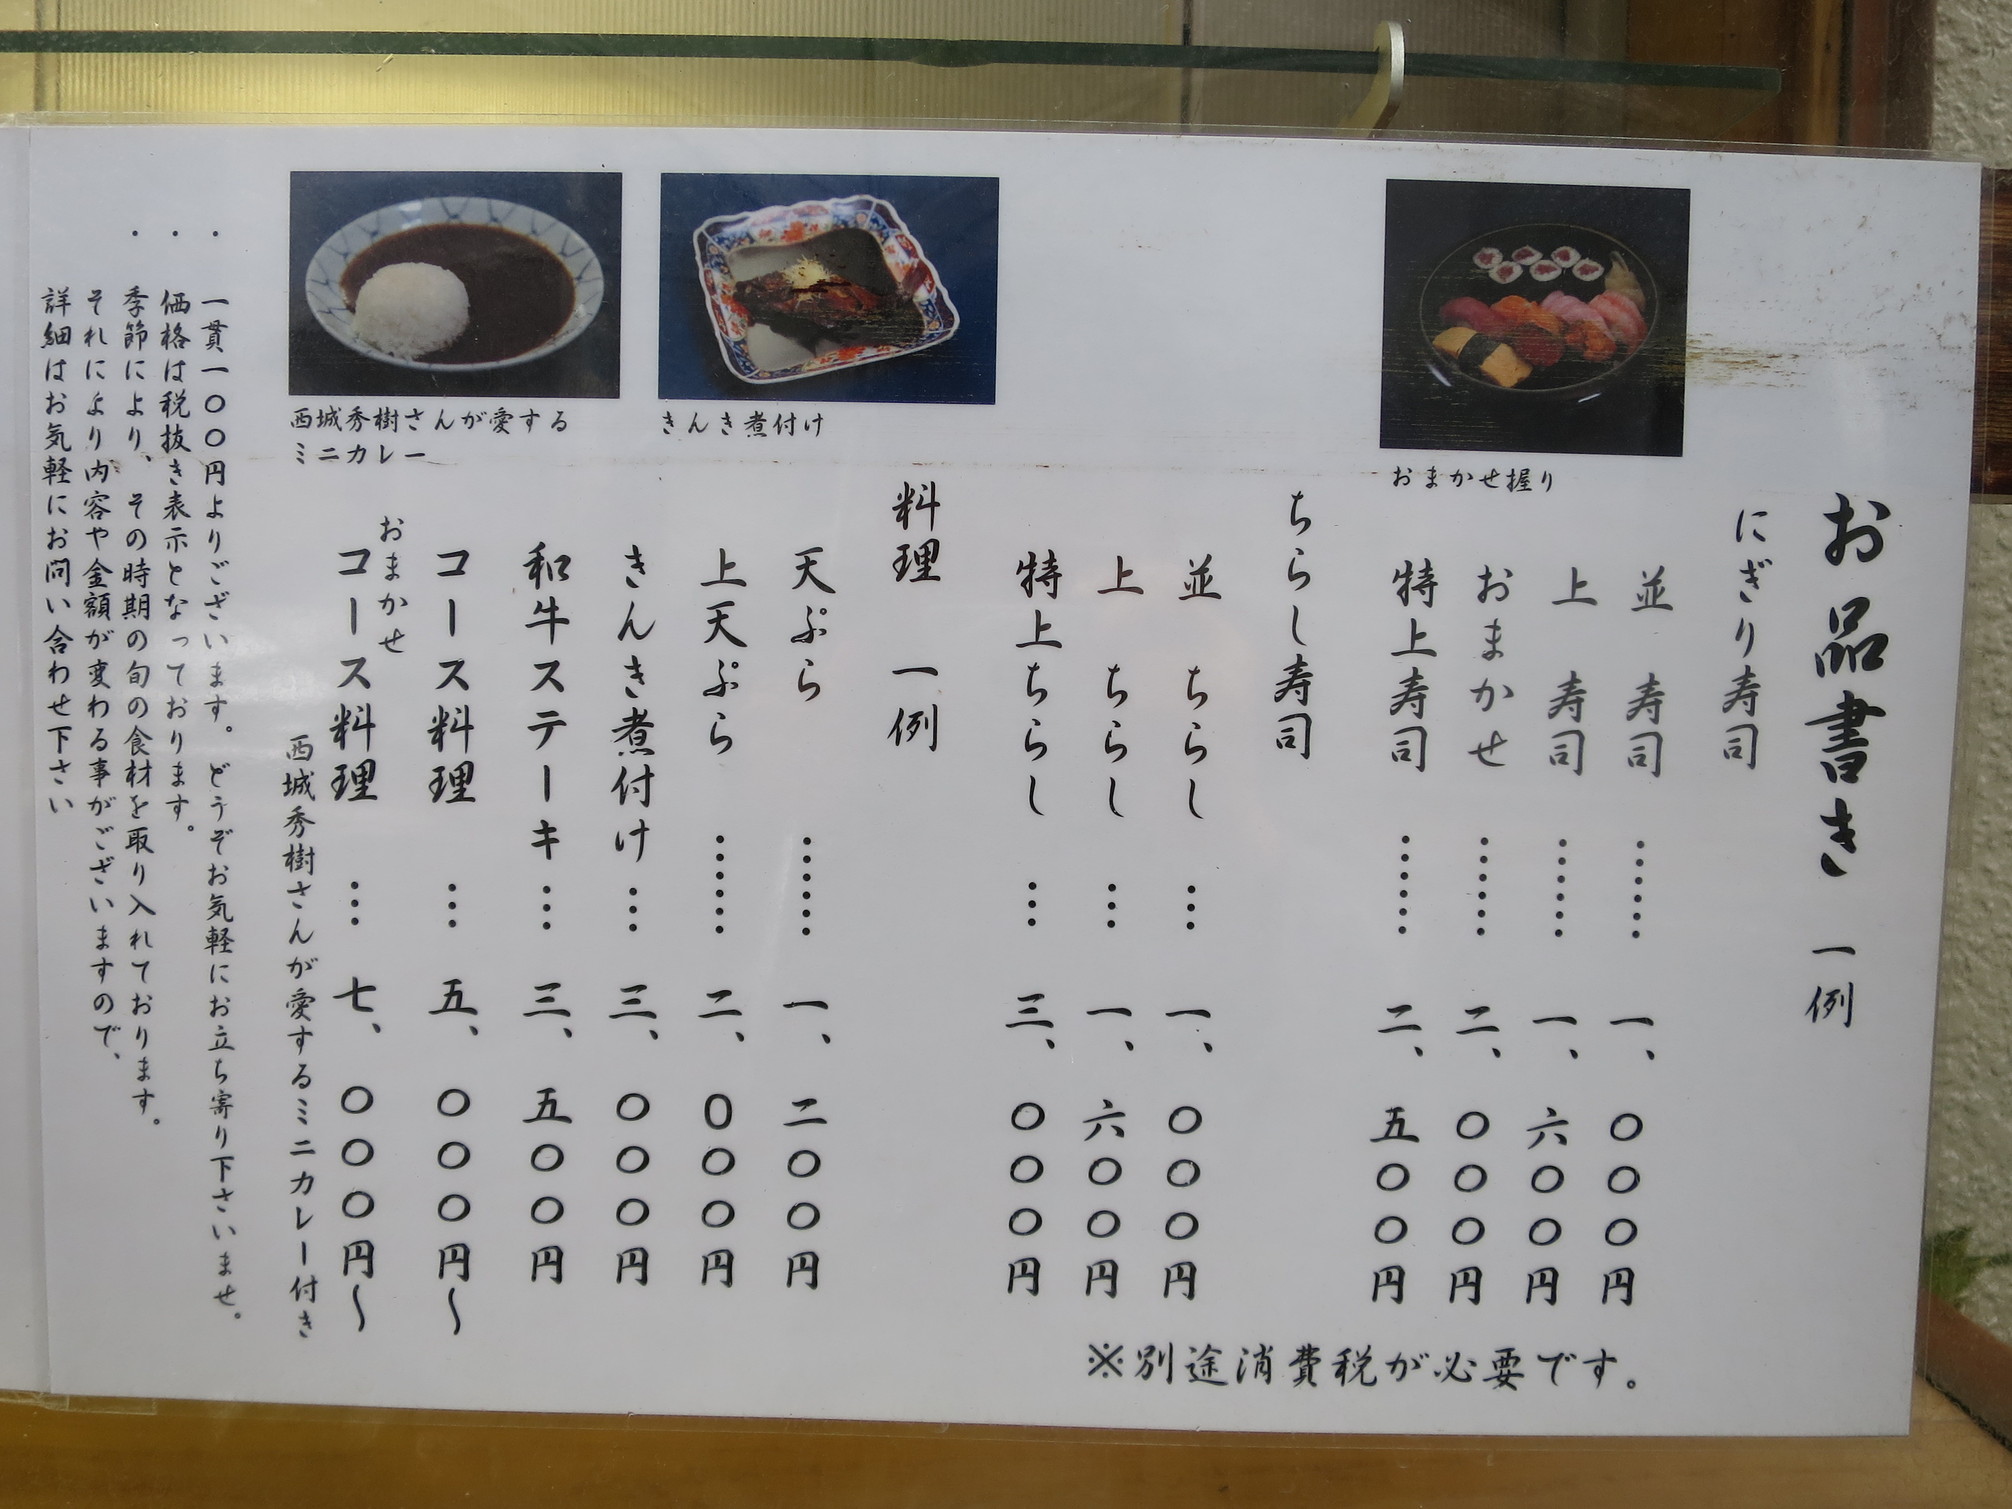 お品書き 一例
にぎり寿司
並 寿司 …… 一、〇〇〇円
上 寿司 …… 一、六〇〇円
おまかせ …… 二、〇〇〇円
特上寿司 …… 二、五〇〇円
ちらし寿司
並 ちらし … 一、〇〇〇円
上 ちらし … 一、六〇〇円
特上ちらし … 三、〇〇〇円
※別途消費税が必要です。
料理 一例
天ぷら …… 一、二〇〇円
上天ぷら …… 二、〇〇〇円
きんき煮付け … 三、〇〇〇円
和牛ステーキ … 三、五〇〇円
コース料理 … 五、〇〇〇円〜
おまかせ
コース料理 … 七、〇〇〇円〜
西城秀樹さんが愛するミニカレー付き
おまかせ握り
きんき煮付け
西城秀樹さんが愛する
ミニカレー
・ 一貫一〇〇円よりございます。どうぞお気軽にお立ち寄り下さいませ。
・ 価格は税抜き表示となっております。
・ 季節により、その時期の旬の食材を取り入れております。
それにより内容や金額が変わる事がございますので、
詳細はお気軽にお問い合わせ下さい